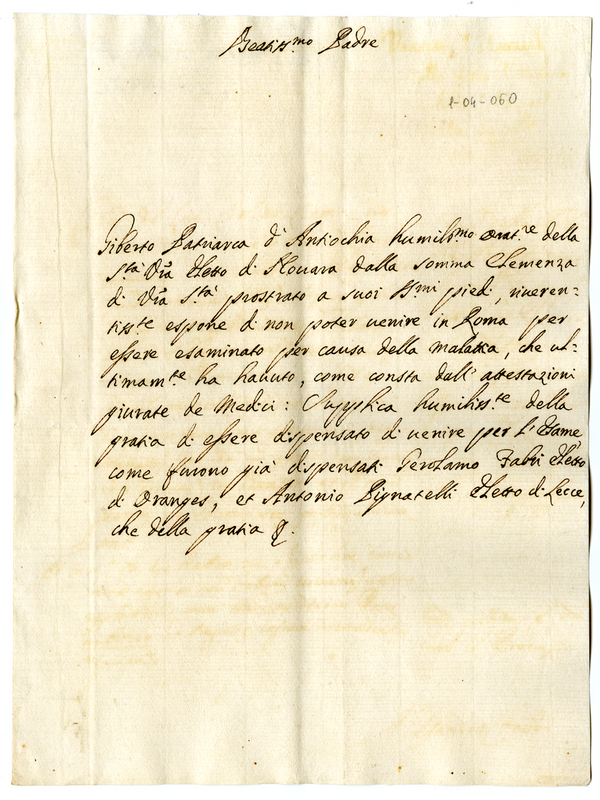 Beatiss.mo Padre
1-04-060
Giberto Patriarca d'Antiochia humiliss.mo Orat.re della
S.tà V̄ra Eletto di Novara dalla somma Clemenza
di V̄ra S.tà prostrato a suoi SS.mi piedi, riveren=
tiss.te espone di non poter venire in Roma per
essere esaminato per causa della malatia, che ul=
timam.te ha havuto, come consta dall'attestazioni
giurate de Medici: Supplica humiliss.te della
gratia di essere dispensato di venire per l'Esame
come furono già dispensati Gerolamo Fabri Eletto
di Oranges, et Antonio Pignatelli Eletto di Lecce,
che della gratia